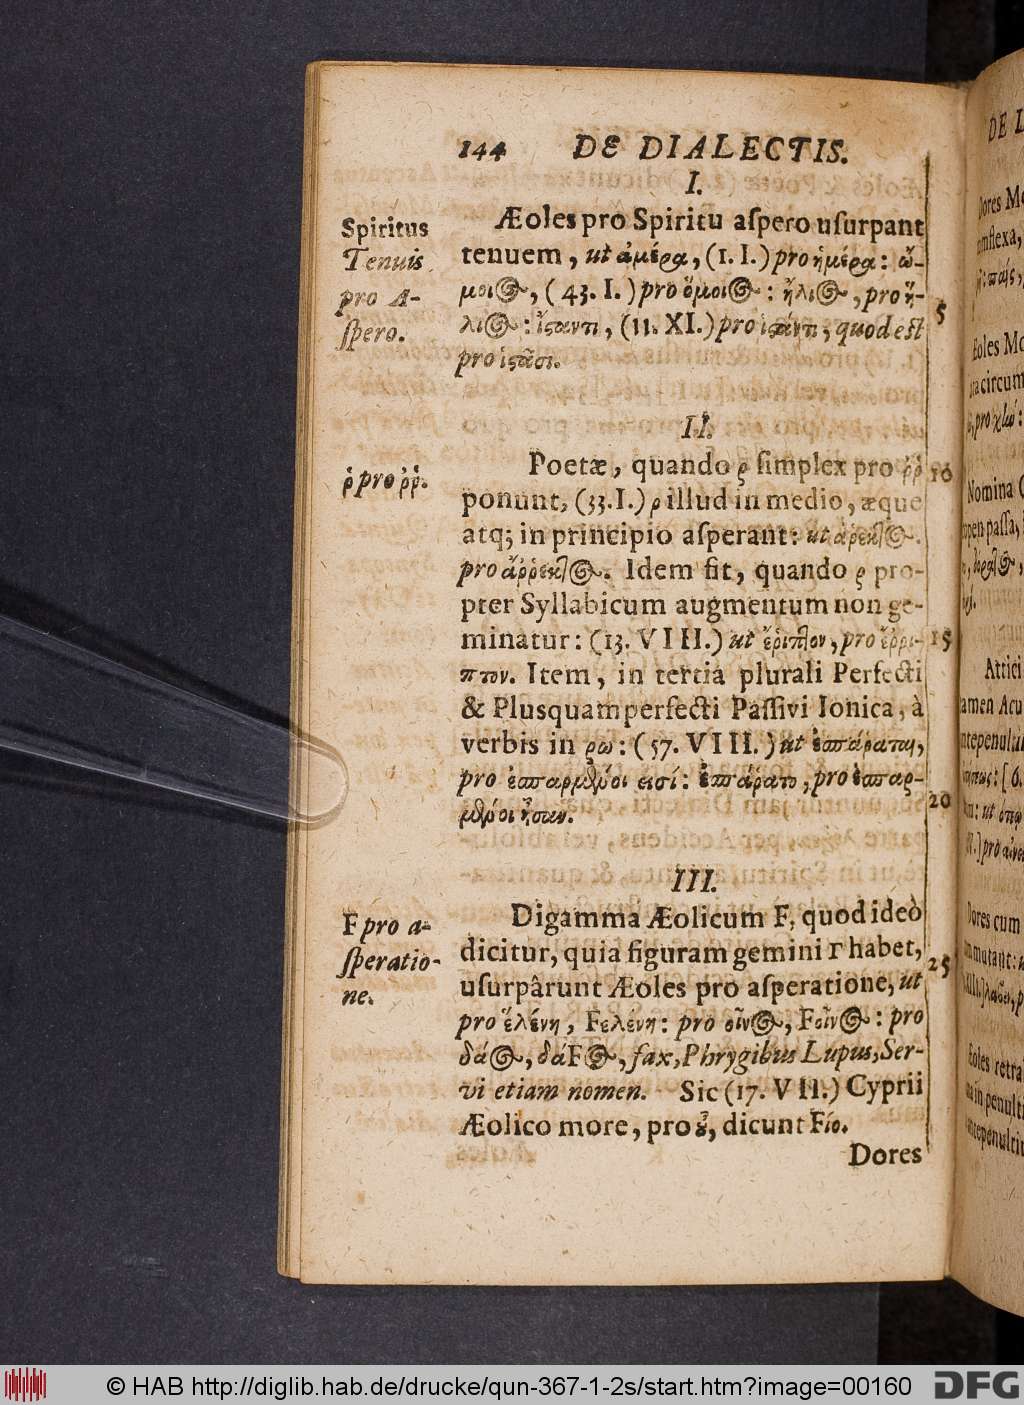 144 DE DIALECTIS.
I.
Spiritus
Tenuis
pro A-
ſpero.
Æoles pro Spiritu aſpero uſurpant
tenuem, ut ἀμέρα, (1. I.) pro ἡμέρα: ὤ-
μοιος, (43. I.) pro ὅμοιος: ἤλιος, pro ἥ-
λιος: ἴσταντι, (11. XI.) pro ἱστάντι, quod eſt
pro ἱστᾶσι.
5
II.
ῥ pro ῤῥ.
Poetæ, quando ρ ſimplex pro ῤῥ
ponunt, (33. I.) ρ illud in medio, æque
atq; in principio aſperant: ut ἄρεκτος.
pro ἄῤῥεκτος. Idem fit, quando ρ pro-
pter Syllabicum augmentum non ge-
minatur: (13. VIII.) ut ἔριπτον, pro ἔῤῥι-
πτον. Item, in tertia plurali Perfecti
& Plusquamperfecti Paſſivi Ionica, à
verbis in ρω: (57. VIII.) ut ἐσπάραται,
pro ἐσπαρμένοι εἰσί: ἐσπάρατο, pro ἐσπαρ-
μένοι ἦσαν.
10
15
20
III.
F pro a-
ſperatio-
ne.
Digamma Æolicum F, quod ideò
dicitur, quia figuram gemini Γ habet,
uſurpârunt Æoles pro aſperatione, ut
pro ἑλένη, Fελένη: pro οἶνος, Fοῖνος: pro
δάος, δάFος, fax, Phrygibus Lupus, Ser-
vi etiam nomen. Sic (17. VII.) Cyprii
Æolico more, pro οὗ, dicunt Fίο.
25
Dores
DE
Dores
Æoles
Nomina
Attici
amen Acu
antepenul
Dores cum
Æoles retra
in penulti
© HAB http://diglib.hab.de/drucke/qun-367-1-2s/start.htm?image=00160
DFG